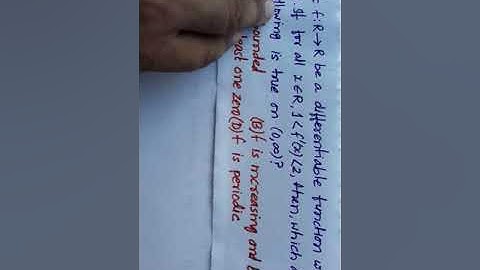 f:R→R be a differentiable function
If for all x∈R, 1<f'(x)<2, then, which
is true on (0,∞)?
(B) f is increasing and
one zero (D) f is periodic